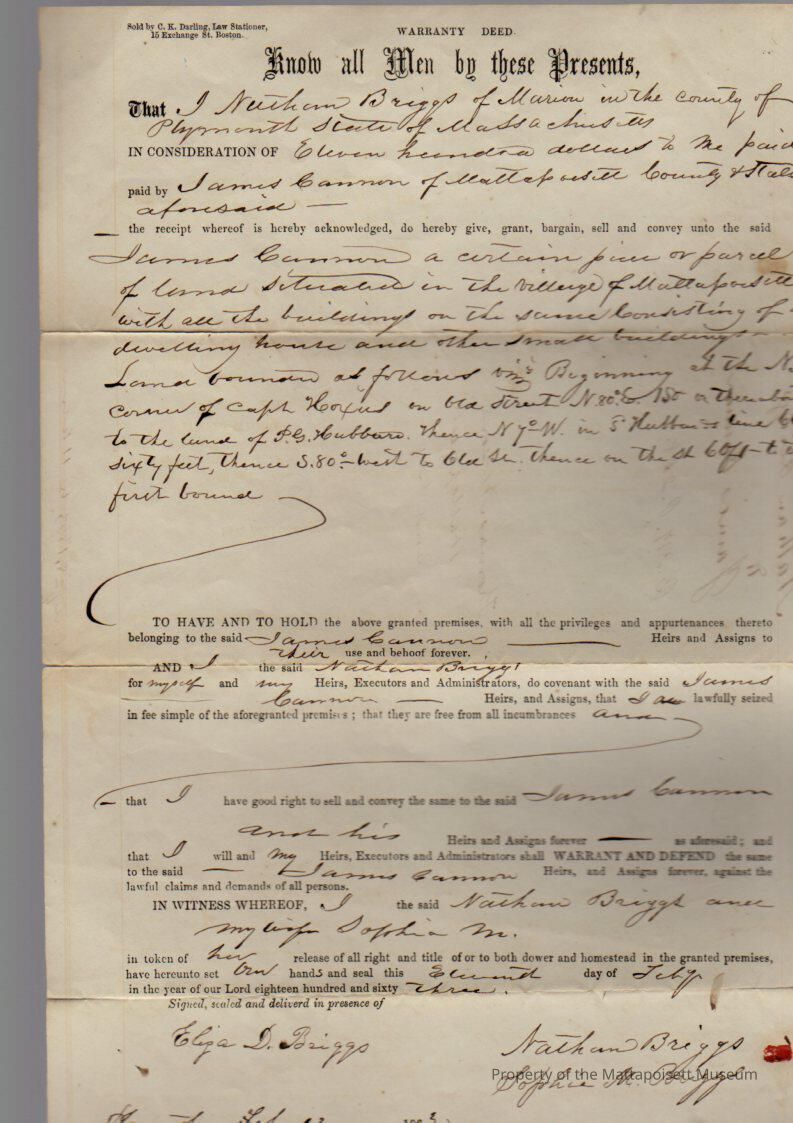 Sold by C. K. Darling, Law Stationer,
15 Exchange St. Boston.
WARRANTY DEED.
Know all Men by these Presents,
That I Nathan Briggs of Marion in the county of
Plymouth State of Massachusetts
IN CONSIDERATION OF Eleven hundred dollars to me paid
paid by James Cannon of Mattapoisett County & State
aforesaid —
— the receipt whereof is hereby acknowledged, do hereby give, grant, bargain, sell and convey unto the said
James Cannon a certain piece or parcel
of land situated in the village of Mattapoisett
with all the buildings on the same consisting of
dwelling house and other small buildings —
Land bounded as follows viz Beginning at the
corner of Capt Hoxies on Old Street N.80°E. 150 or there
to the land of P.G. Hubbard. thence N 7°W. in Hubbards line
sixty feet, thence S.80° west to Old St. thence on the St 60ft to
first bound
TO HAVE AND TO HOLD the above granted premises, with all the privileges and appurtenances thereto
belonging to the said James Cannon — Heirs and Assigns to
their use and behoof forever.
AND I the said Nathan Briggs
for myself and my Heirs, Executors and Administrators, do covenant with the said James
Cannon — Heirs, and Assigns, that I am lawfully seized
in fee simple of the aforegranted premises; that they are free from all incumbrances and
— that I have good right to sell and convey the same to the said James Cannon
and his Heirs and Assigns forever — as aforesaid; and
that I will and my Heirs, Executors and Administrators shall WARRANT AND DEFEND the same
to the said — James Cannon Heirs, and Assigns forever, against the
lawful claims and demands of all persons.
IN WITNESS WHEREOF, I the said Nathan Briggs and
my wife Sophia M.
in token of her release of all right and title of or to both dower and homestead in the granted premises,
have hereunto set our hands and seal this Eleventh day of Feby
in the year of our Lord eighteen hundred and sixty three.
Signed, sealed and deliverd in presence of
Eliza D. Briggs
Nathan Briggs
Sophia M. Briggs
Property of the Mattapoisett Museum